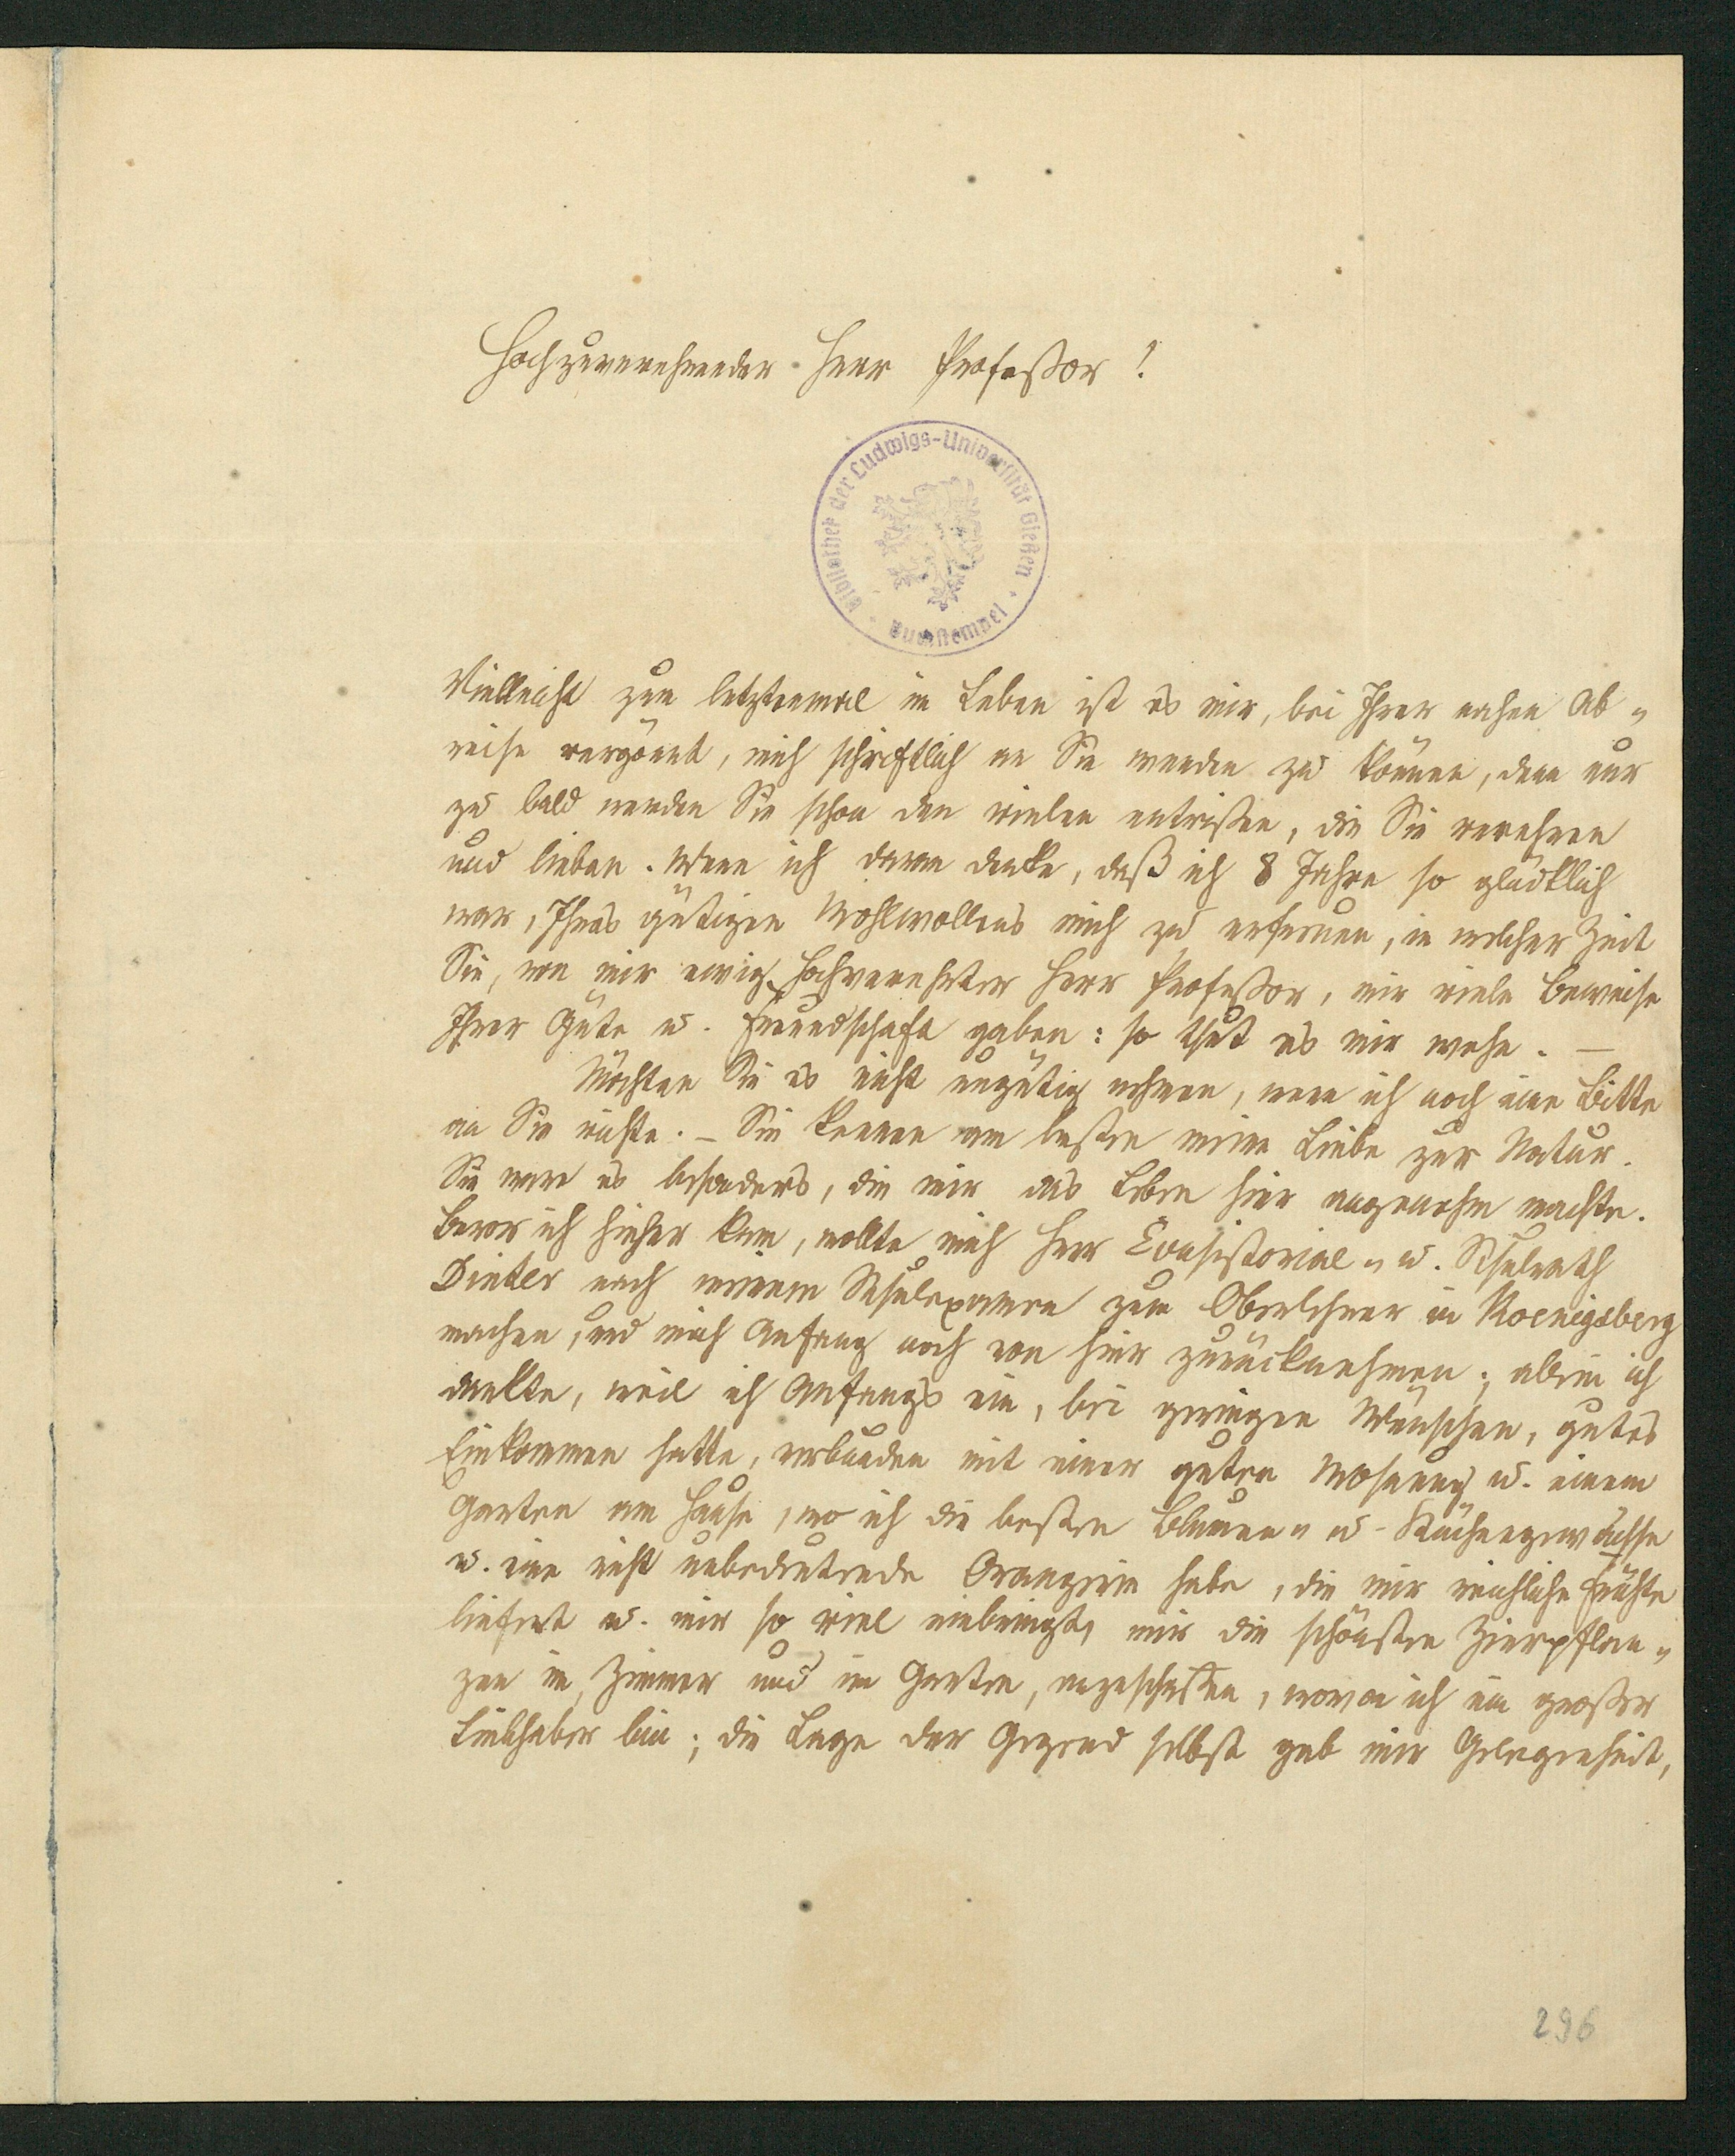 Hochzuverehrender Herr Profeßor!
Bibliothek der Ludwigs-Universität Gießen
Buchstempel
Vielleicht zum letztenmal im Leben ist es mir, bei Ihrer nahen Ab„
reise vergönnt, mich schriftlich an Sie wenden zu können, denn nur
zu bald werden Sie schon den vielen entrißen, die Sie verehren
und lieben. Wenn ich daran denke, daß ich 8 Jahre so glücklich
war, Ihres gütigen Wohlwollens mich zu erfreuen, in welcher Zeit
Sie, von mir ewig hochverehrter Herr Profeßor, mir viele Beweise
Ihrer Güte u. Freundschaft gaben: so thut es mir wehe. —
Möchten Sie es nicht ungütig nehmen, wenn ich noch eine Bitte
an Sie richte. – Sie kennen am besten meine Liebe zur Natur.
Sie war es besonders, die mir das Leben hier angenehm machte.
Bevor ich hieher kam, wollte mich Herr Consistorial„ u. Schulrath
Dinter nach meinem Schulexamen zum Oberlehrer in Koenigsberg
machen, und mich Anfang noch von hier zurücknehmen; allein ich
dankte, weil ich Anfangs ein, bei geringen Wünschen, gutes
Einkommen hatte, verbunden mit einer guten Wohnung u. einem
Garten am Hause, wo ich die besten Blumen„ u- Küchengewächse
u. eine nicht unbedeutende Orangerie habe, die mir reichliche Früchte
liefert u. mir so viel einbringt, mir die schönsten Zierpflan„
zen im Zimmer und im Garten, anzuschaffen, wovon ich ein großer
Liebhaber bin; die Lage der Gegend selbst gab mir Gelegenheit,
296